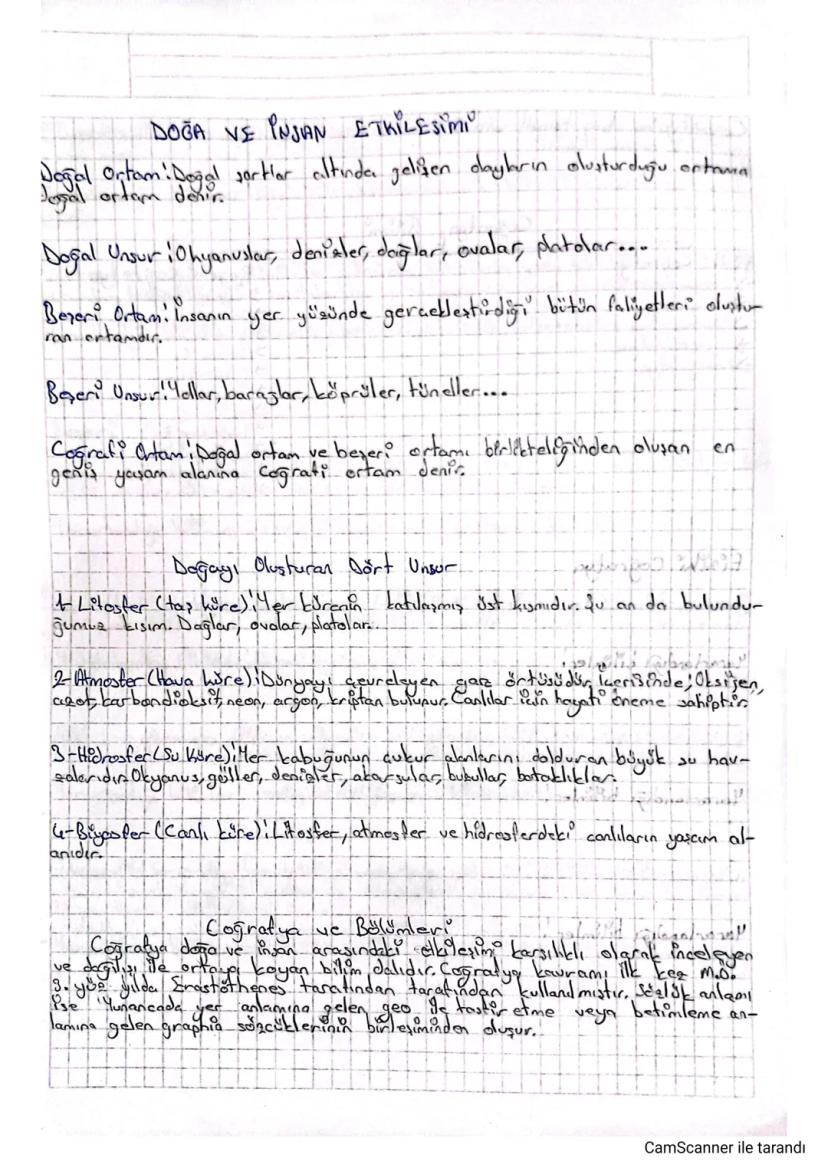 DOĞA VE İNSAN ETKİLEŞİMİ
Doğal Ortam: Doğal şartlar altında gelişen olayların oluşturduğu ortama
doğal ortam denir.
Doğal Unsur: Okyanuslar, denizler, dağlar, ovalar, platolar...
Beşeri Ortam: İnsanın yer yüzünde gerçekleştirdiği bütün faliyetleri oluştu-
ran ortamdır.
Beşeri Unsur: Yollar, barajlar, köprüler, tüneller...
Coğrafi Ortam: Doğal ortam ve beşeri ortamı birlikteliğinden oluşan en
geniş yaşam alanına Coğrafi ortam denir.
Doğayı Oluşturan Dört Unsur
1- Litosfer (taş küre): Yer kürenin katılaşmış üst kısmıdır. Şu an da bulundu-
ğumuz kısım. Dağlar, ovalar, platolar...
2- Atmosfer (Hava küre): Dünyayı çevreleyen gaz örtüsüdür, İçerisinde; Oksijen,
azot, karbondioksit, neon, argon, kriptan bulunur. Canlılar için hayati öneme sahiptir
3- Hidrosfer (Su Küre): Yer kabuğunun çukur alanlarını dolduran büyük su hav-
zalarıdır. Okyanus, göller, denizler, akarsular, buzullar, bataklıklar.
4- Biyosfer (Canlı küre): Litosfer, atmosfer ve hidrosferdeki canlıların yaşam al-
anıdır.
Coğrafya ve Bölümleri
Coğrafya doğa ve insan arasındaki etkileşimi karşılıklı olarak inceleyen
ve dağılışı ile ortaya koyan bilim dalıdır. Coğrafya kavramı ilk kez M.Ö.
3. yüz yılda Erastothenes tarafından tarafından kullanılmıştır. Sözlük anlamı
ise Yunancada yer anlamına gelen geo ile tasvir etme veya betimleme an-
lamına gelen graphia sözcüklerinin birleşiminden oluşur.
CamScanner ile tarandı